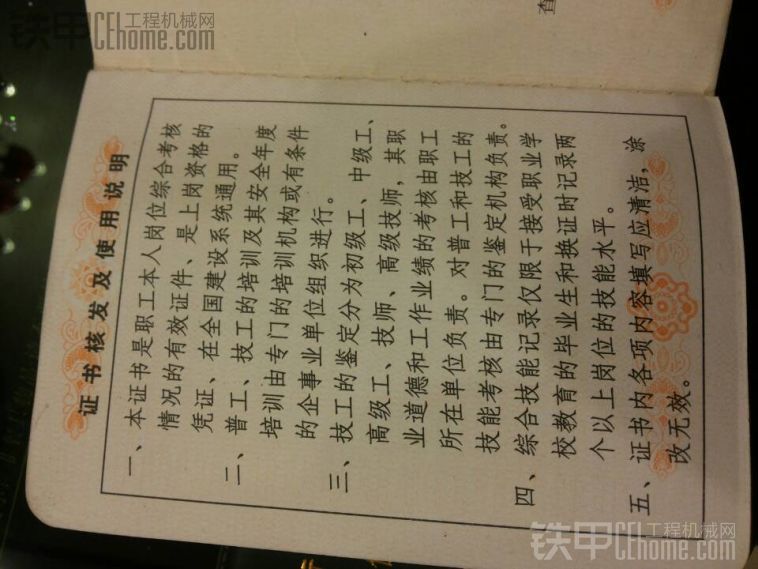 证书核发及使用说明
一、本证书是职工本人岗位综合考核
情况的有效证件、是上岗资格的
凭证、在全国建设系统通用。
二、普工、技工的培训及其安全年度
培训由专门的培训机构或有条件
的企事业单位组织进行。
三、技工的鉴定分为初级工、中级工、
高级工、技师、高级技师，其职
业道德和工作业绩的考核由职工
所在单位负责。对普工和技工的
技能考核由专门的鉴定机构负责。
四、综合技能记录仅限于接受职业学
校教育的毕业生和换证时记录两
个以上岗位的技能水平。
五、证书内各项内容填写应清洁，涂
改无效。
查
铁甲工程机械网
CEhome.com
铁甲工程机械网
CEhome.com